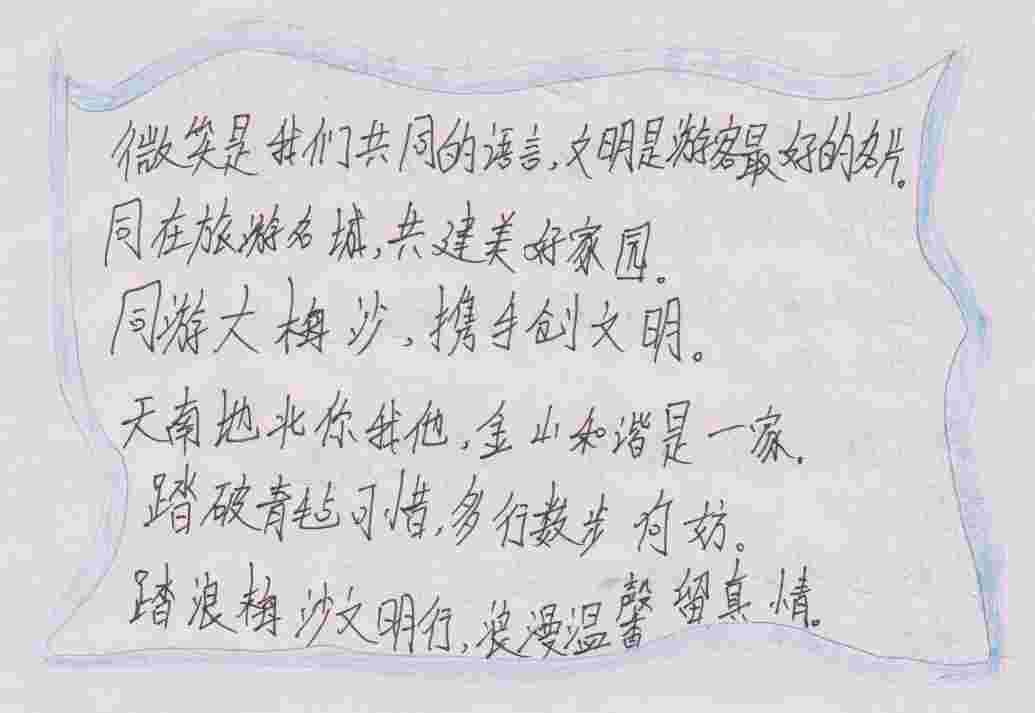 微笑是我们共同的语言,文明是游客最好的名片。
同在旅游名城,共建美好家园。
同游大梅沙,携手创文明。
天南地北你我他,金山和谐是一家。
踏破青毡可惜,多行数步何妨。
踏浪梅沙文明行,浪漫温馨留真情。